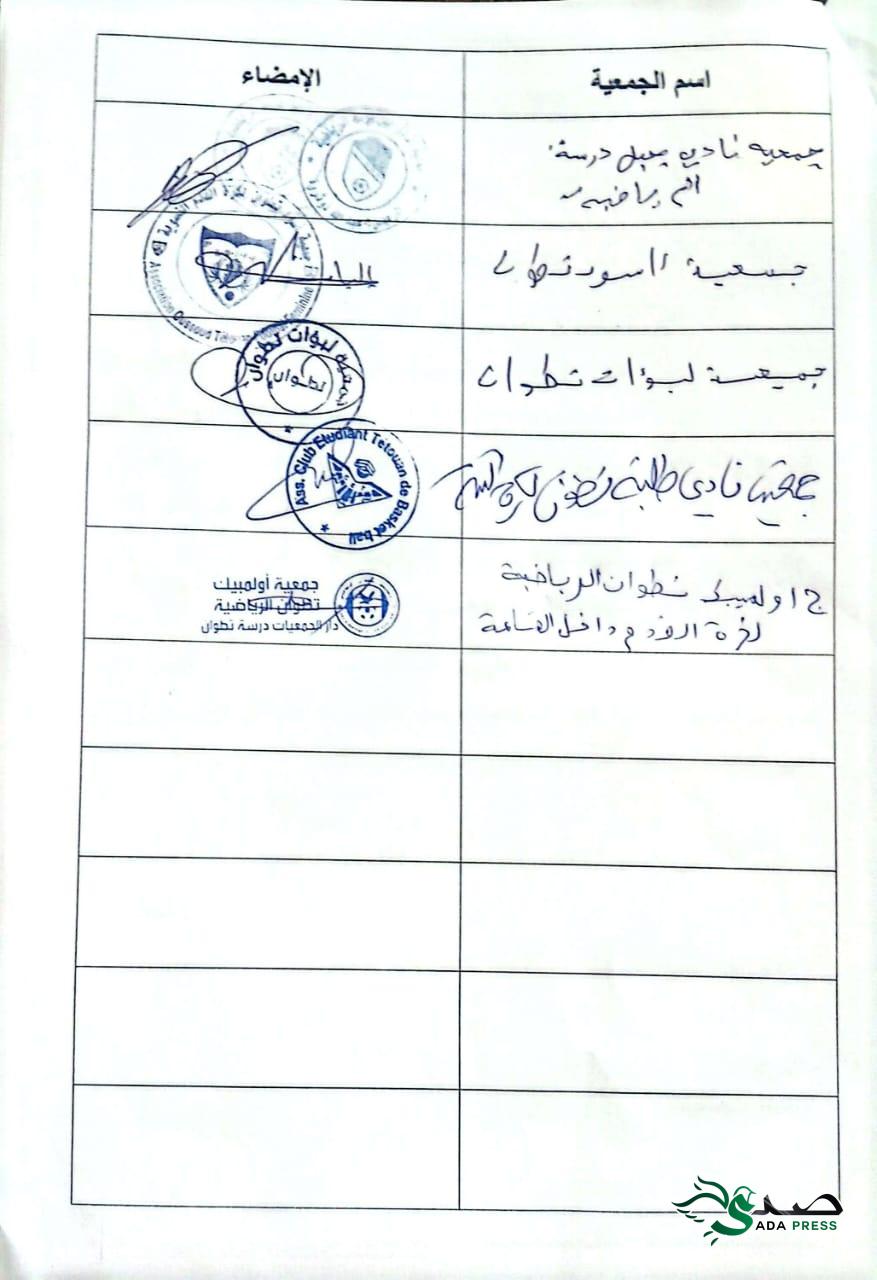 اسم الجمعية
الإمضاء
جمعية نادي جبل درسة
الرياضية
جمعية أسود تطوان
Association Oussoud
جمعية لبؤات تطوان
جمعية لبؤات تطوان
تطوان
جمعية نادي طلبة تطوان لكرة السلة
Ass. Club Etudiant Tetouan de Basket ball
ج اولمبيك تطوان الرياضية
لكرة القدم داخل القاعة
جمعية أولمبيك
تطوان الرياضية
دار الجمعيات درسة تطوان
صدى
SADA PRESS